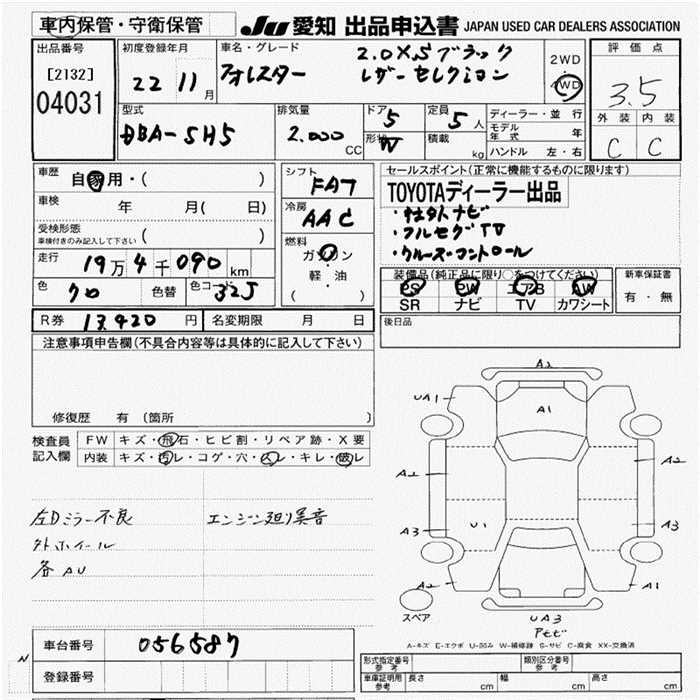 車内保管・守衛保管
JU 愛知 出品申込書 JAPAN USED CAR DEALERS ASSOCIATION
出品番号
[2132]
04031
初度登録年月
22 11月
車名・グレード
フォレスター
2.0XSブラック
レザーセレクション
2WD
4WD
評価点
3.5
外装 内装
C C
型式
DBA-SH5
排気量
2.000 CC
ドア 5
形状 W
定員 5人
積載 kg
ディーラー・並行
モデル年式 年
ハンドル 左・右
車歴 自家用・( )
車検 年 月( 日)
受検形態
車検付きのみ記入して下さい ( )
走行 19万4千090km
色 クロ 色替 色コード 32J
シフト FA7
冷房 AAC
燃料
ガソリン
軽・油
( )
セールスポイント(正常に機能するものに限ります)
TOYOTAディーラー出品
・社外ナビ
・フルセグTV
・クルーズ・コントロール
装備品(純正品に限り○をつけてください)
PS PW エアB AW
SR ナビ TV カワシート
新車保証書
有・無
R券 13.420円 名変期限 月 日
後日品
注意事項申告欄(不具合内容等は具体的に記入して下さい)
修復歴 有 (箇所
検査員記入欄
FW キズ・飛石・ヒビ割・リペア跡・X要
内装 キズ・汚レ・コゲ・穴・スレ・キレ・破レ
左Dミラー不良 エンジン廻り異音
外ホイール
各AU
A2
UA1
A1
A2 A2
A3 U1 A3
A2 A1
スペア
UA3
アセビ
A-キズ E-エクボ U-凹み W-補修跡 S-サビ C-腐食 XX-交換済
N
車台番号 056587
登録番号
形式指定番号 参考 類別区分番号 参考
車庫証明用 参考 長さ cm 幅 cm 高さ cm